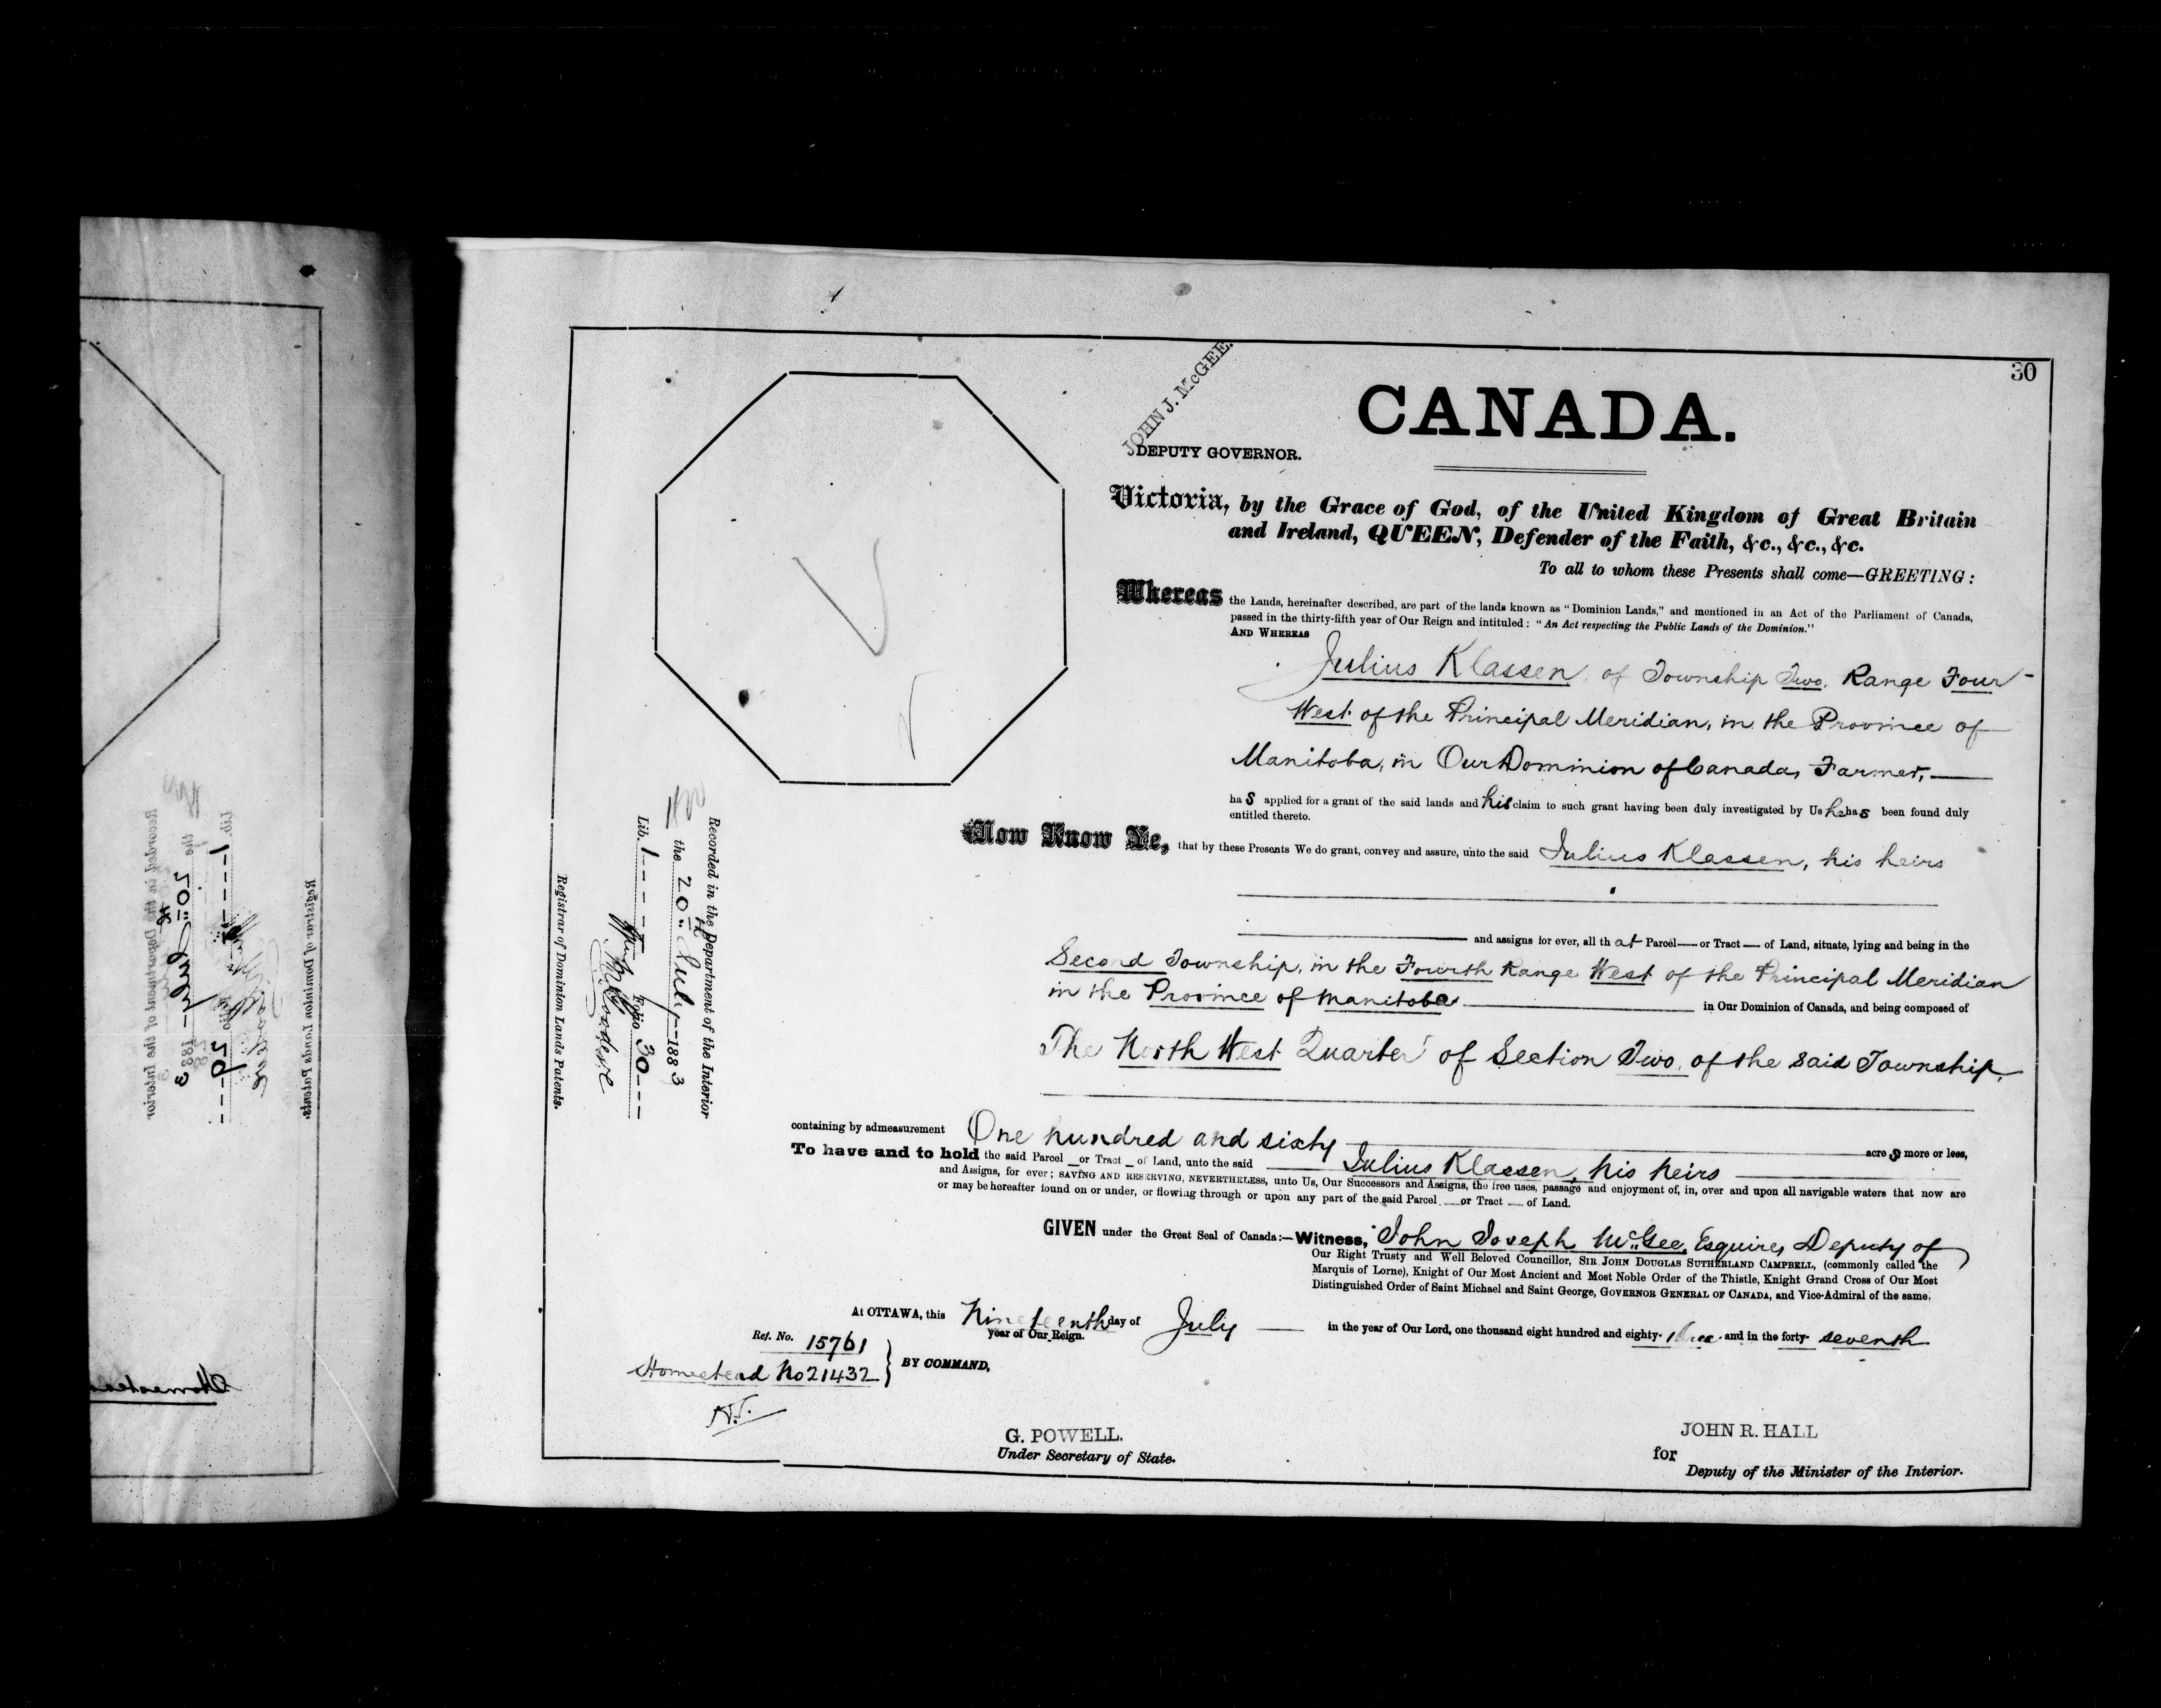 30
JOHN J. McGEE.
DEPUTY GOVERNOR.
CANADA.
Victoria, by the Grace of God, of the United Kingdom of Great Britain
and Ireland, QUEEN, Defender of the Faith, &c., &c., &c.
To all to whom these Presents shall come—GREETING:
Whereas the Lands, hereinafter described, are part of the lands known as "Dominion Lands," and mentioned in an Act of the Parliament of Canada,
passed in the thirty-fifth year of Our Reign and intituled: "An Act respecting the Public Lands of the Dominion."
AND WHEREAS
Julius Klassen, of Township Two, Range Four
West of the Principal Meridian, in the Province of
Manitoba, in Our Dominion of Canada, Farmer,
ha s applied for a grant of the said lands and his claim to such grant having been duly investigated by Us he has been found duly
entitled thereto.
Now Know Ye, that by these Presents We do grant, convey and assure, unto the said Julius Klassen, his heirs
and assigns for ever, all th at Parcel — or Tract — of Land, situate, lying and being in the
Second Township, in the Fourth Range West of the Principal Meridian
in the Province of Manitoba in Our Dominion of Canada, and being composed of
The North West Quarter of Section Two, of the said Township,
containing by admeasurement One hundred and sixty acre s more or less,
To have and to hold the said Parcel — or Tract — of Land, unto the said Julius Klassen, his heirs
and Assigns, for ever; SAVING AND RESERVING, NEVERTHELESS, unto Us, Our Successors and Assigns, the free uses, passage and enjoyment of, in, over and upon all navigable waters that now are
or may be hereafter found on or under, or flowing through or upon any part of the said Parcel — or Tract — of Land.
GIVEN under the Great Seal of Canada:—Witness, John Joseph McGee, Esquire, Deputy of
Our Right Trusty and Well Beloved Councillor, SIR JOHN DOUGLAS SUTHERLAND CAMPBELL, (commonly called the
Marquis of Lorne), Knight of Our Most Ancient and Most Noble Order of the Thistle, Knight Grand Cross of Our Most
Distinguished Order of Saint Michael and Saint George, GOVERNOR GENERAL OF CANADA, and Vice-Admiral of the same.
At OTTAWA, this Nineteenth day of July in the year of Our Lord, one thousand eight hundred and eighty-three and in the forty-seventh
year of Our Reign.
Ref. No. 15761
Homestead No 21432
BY COMMAND,
G. POWELL.
Under Secretary of State.
JOHN R. HALL
for
Deputy of the Minister of the Interior.
Recorded in the Department of the Interior
the 20th July 1883
Lib. 1 Folio 30
Registrar of Dominion Lands Patents.